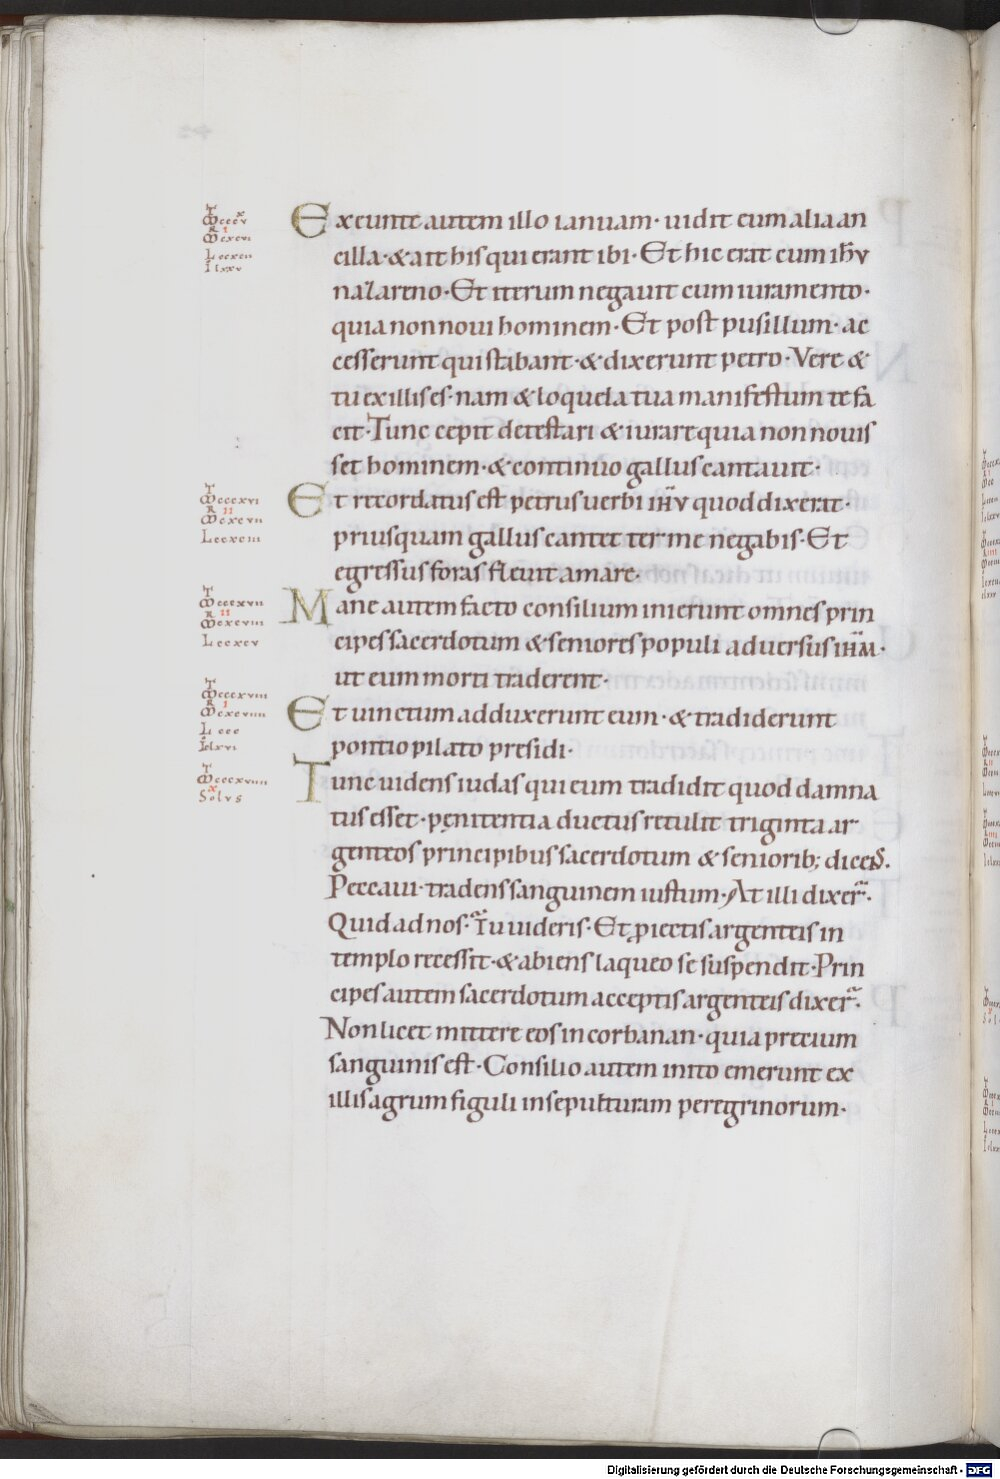 Exeunte autem illo ianuam· uidit eum alia an
cilla·& ait his qui erant ibi· Et hic erat cum ihv̄
nazareno· Et iterum negauit cum iuramento·
quia non noui hominem· Et post pusillum· ac
cesserunt qui stabant·& dixerunt petro· Vere &
tu ex illis es· nam & loquela tua manifestum te fa
cit· Tunc cepit detestari & iurare quia non nouis
set hominem·& continuo gallus cantauit·
Et recordatus est petrus uerbi ihv̄ quod dixerat·
priusquam gallus cantet ter me negabis· Et
egressus foras fleuit amare·
Mane autem facto consilium inierunt omnes prin
cipes sacerdotum & seniores populi aduersus ihm̄·
ut eum morti traderent·
Et uinctum adduxerunt eum·& tradiderunt
pontio pilato presidi·
Tunc uidens iudas qui eum tradidit quod damna
tus esset· pęnitentia ductus retulit triginta ar
genteos principibus sacerdotum & seniorib; dicens·
Peccaui· tradens sanguinem iustum· At illi dixer̄·
Quid ad nos· Tu uideris· Et ꝓiectis argenteis in
templo recessit·& abiens laqueo se suspendit· Prin
cipes autem sacerdotum acceptis argenteis dixer̄·
Non licet mittere eos in corbanan· quia precium
sanguinis est· Consilio autem inito emerunt ex
illis agrum figuli in sepulturam peregrinorum·
Digitalisierung gefördert durch die Deutsche Forschungsgemeinschaft - DFG